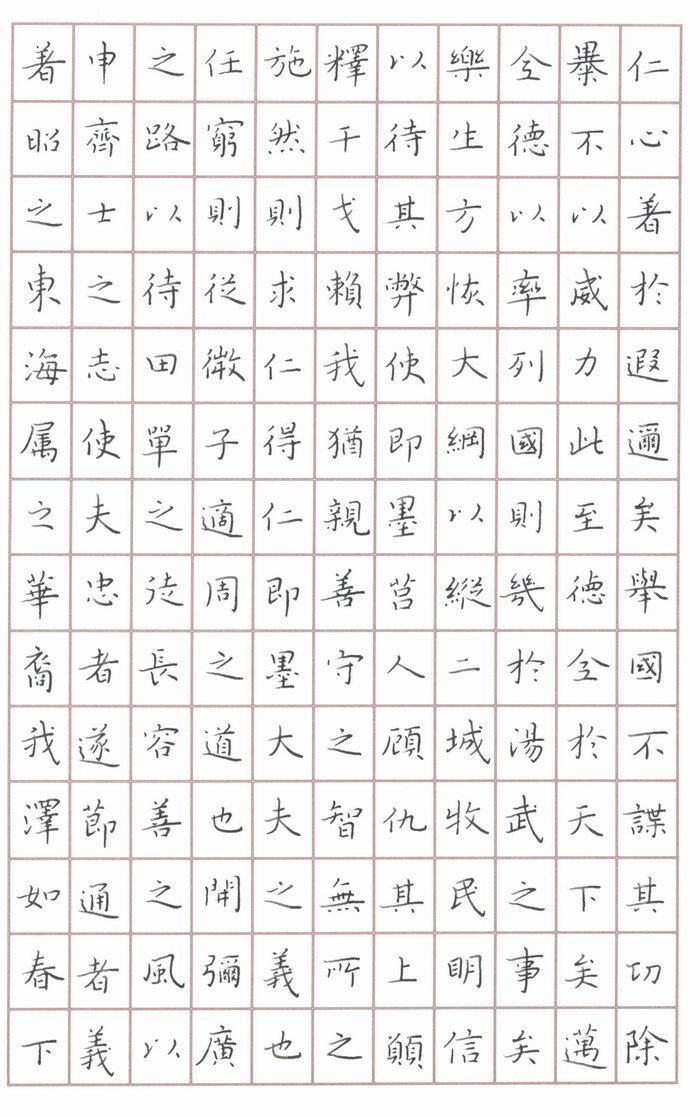 仁心着於遐邇矣舉國不謀其功除
暴不以威力此至德全於天下矣邁
全德以率列國則幾於湯武之事矣
樂生方恢大綱以縱二城牧民明信
以待其弊使即墨莒人顧仇其上願
釋干戈賴我猶親善守之智無所之
施然則求仁得仁即墨大夫之義也
任窮則從微子適周之道也開彌廣
之路以待田單之徒長容善之風以
申齊士之志使夫忠者遂節通者義
着昭之東海属之華裔我澤如春下